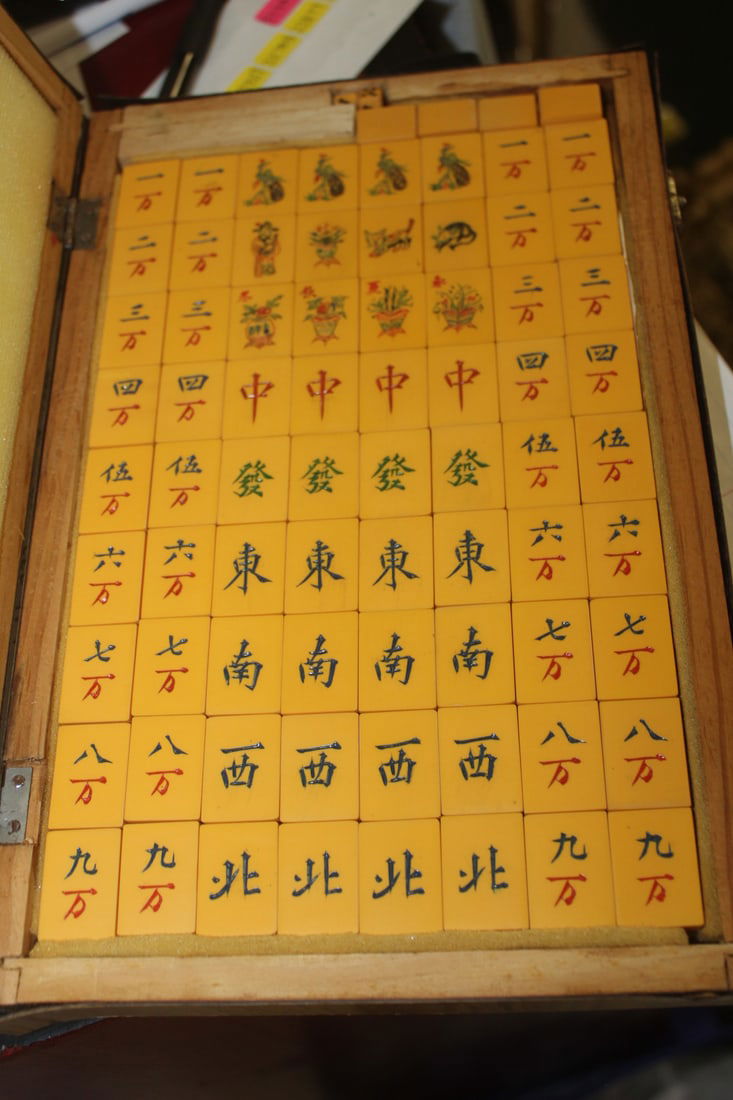 一万 一万 一万 一万
二万 二万 二万 二万
三万 三万 冬 秋 夏 三万 三万
四万 四万 中 中 中 中 四万 四万
伍万 伍万 發 發 發 發 伍万 伍万
六万 六万 東 東 東 東 六万 六万
七万 七万 南 南 南 南 七万 七万
八万 八万 西 西 西 西 八万 八万
九万 九万 北 北 北 北 九万 九万